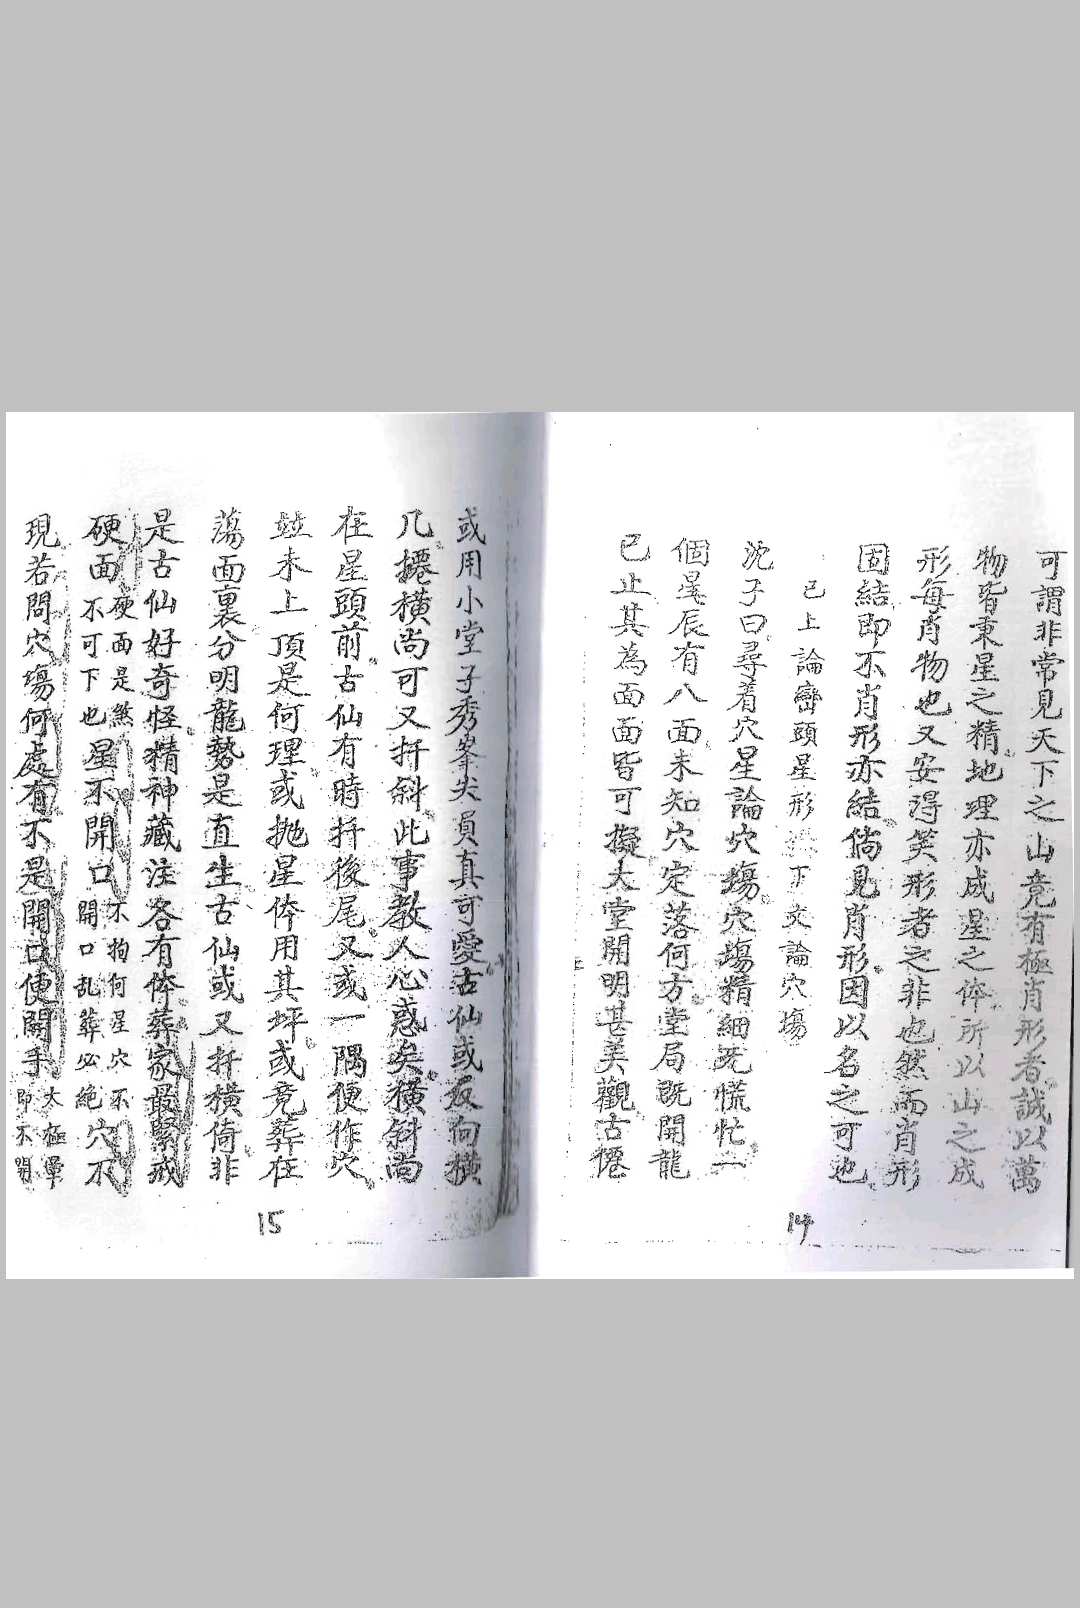 可謂非常見天下之山竟有極肖形者誠以萬
物皆秉星之精地理亦成星之体所以山之成
形每肖物也又安得笑形者之非也然而肖形
固結即不肖形亦結倘見肖形因以名之可也
已上論巒頭星形 下文論穴塲
沈子曰尋着穴星論穴塲穴塲精細旡慌忙一
個星辰有八面未知穴定落何方堂局既開龍
已止其為面面皆可擬大堂開明甚美觀古僊
14
或用小堂子秀峯尖員真可愛古仙或反向橫
几攇橫尚可又扦斜此事教人心惑矣橫斜尚
在星頭前古仙有時扦後尾又或一隅便作穴
並未上頂是何理或拋星体用其坪或竟葬在
蕩面裏分明龍勢是直生古仙或又扦橫倚非
是古仙好奇怪精神藏注各有体葬家最緊戒
硬面硬面是煞不可下也星不開口不拘何星穴不開口乱葬必絶穴不
現若問穴塲何處有不是開口便開手大極暈即不開
15